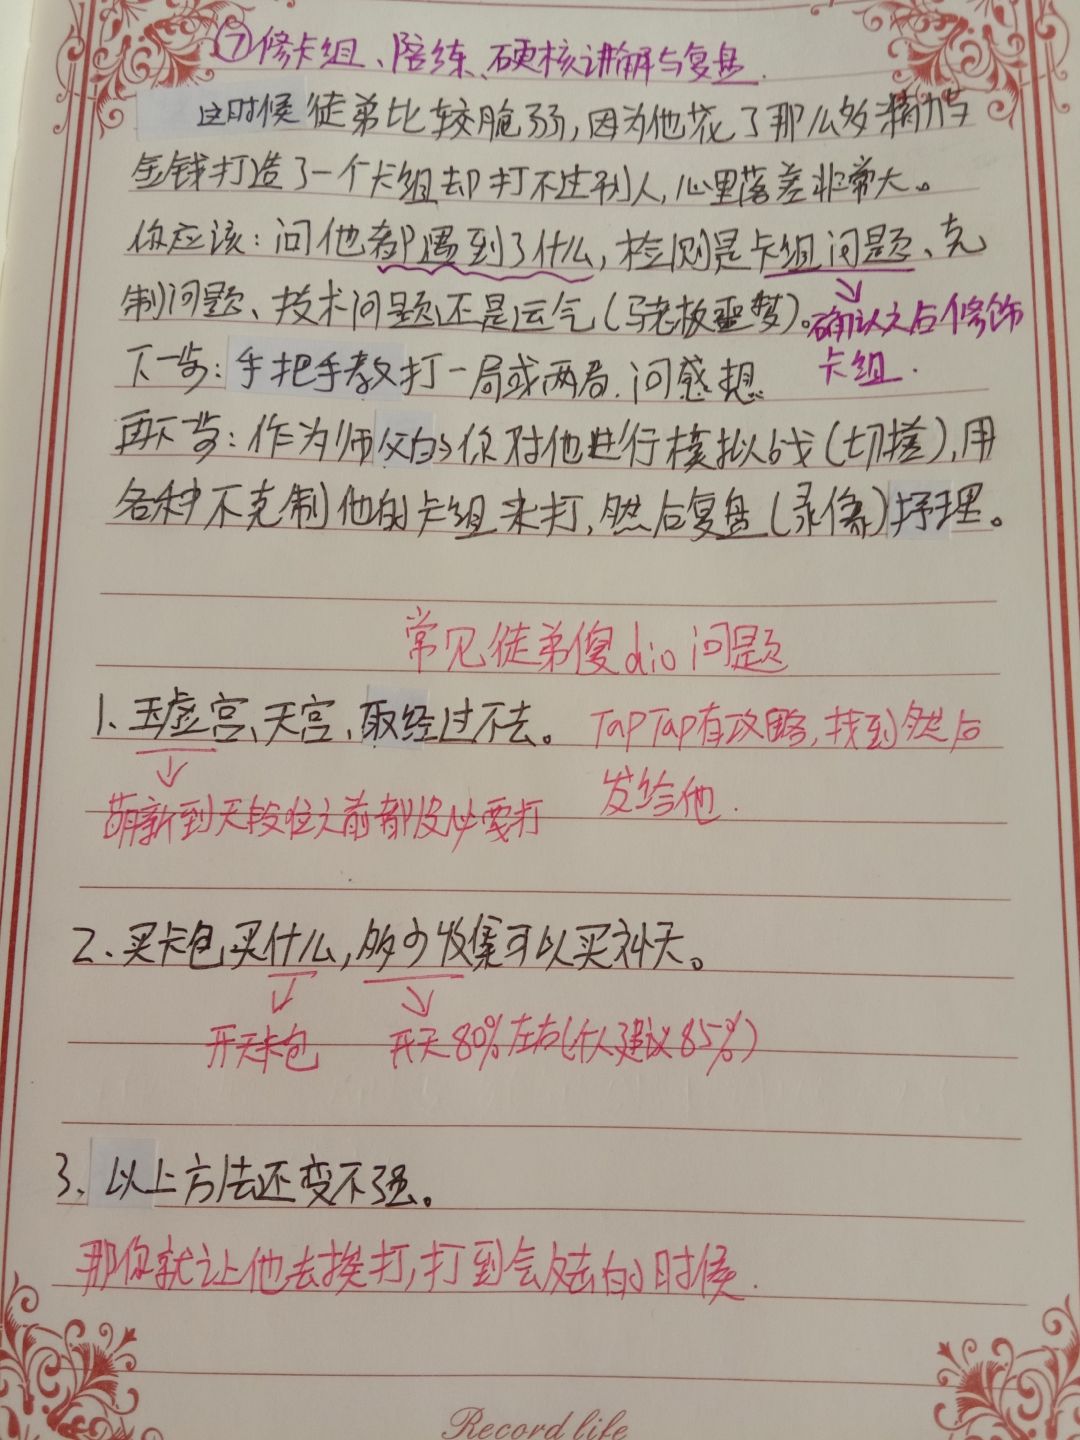 ⑦修卡组、陪练、硬核讲解与复盘.
这时候徒弟比较脆弱,因为他花了那么多精力与
金钱打造了一个卡组却打不过别人,心里落差非常大。
你应该:问他都遇到了什么,检测是卡组问题、克
制问题、技术问题还是运气(马老板噩梦)。确认之后修饰
卡组.
下一步:手把手教打一局或两局.问感想.
再下步:作为师父的你对他进行模拟战(切搓),用
各种不克制他的卡组来打,然后复盘(录像)捋理。
常见徒弟傻dio问题
1、玉虚宫、天宫、取经过不去。 TapTap有攻略,找到然后
发给他.
萌新到天段位之前都没必要打
2、买卡包买什么,多少收集可以买补天。
开天卡包 开天80%左右(个人建议85%)
3、以上方法还变不强。
那你就让他去挨打,打到会反击的时候.
Record life